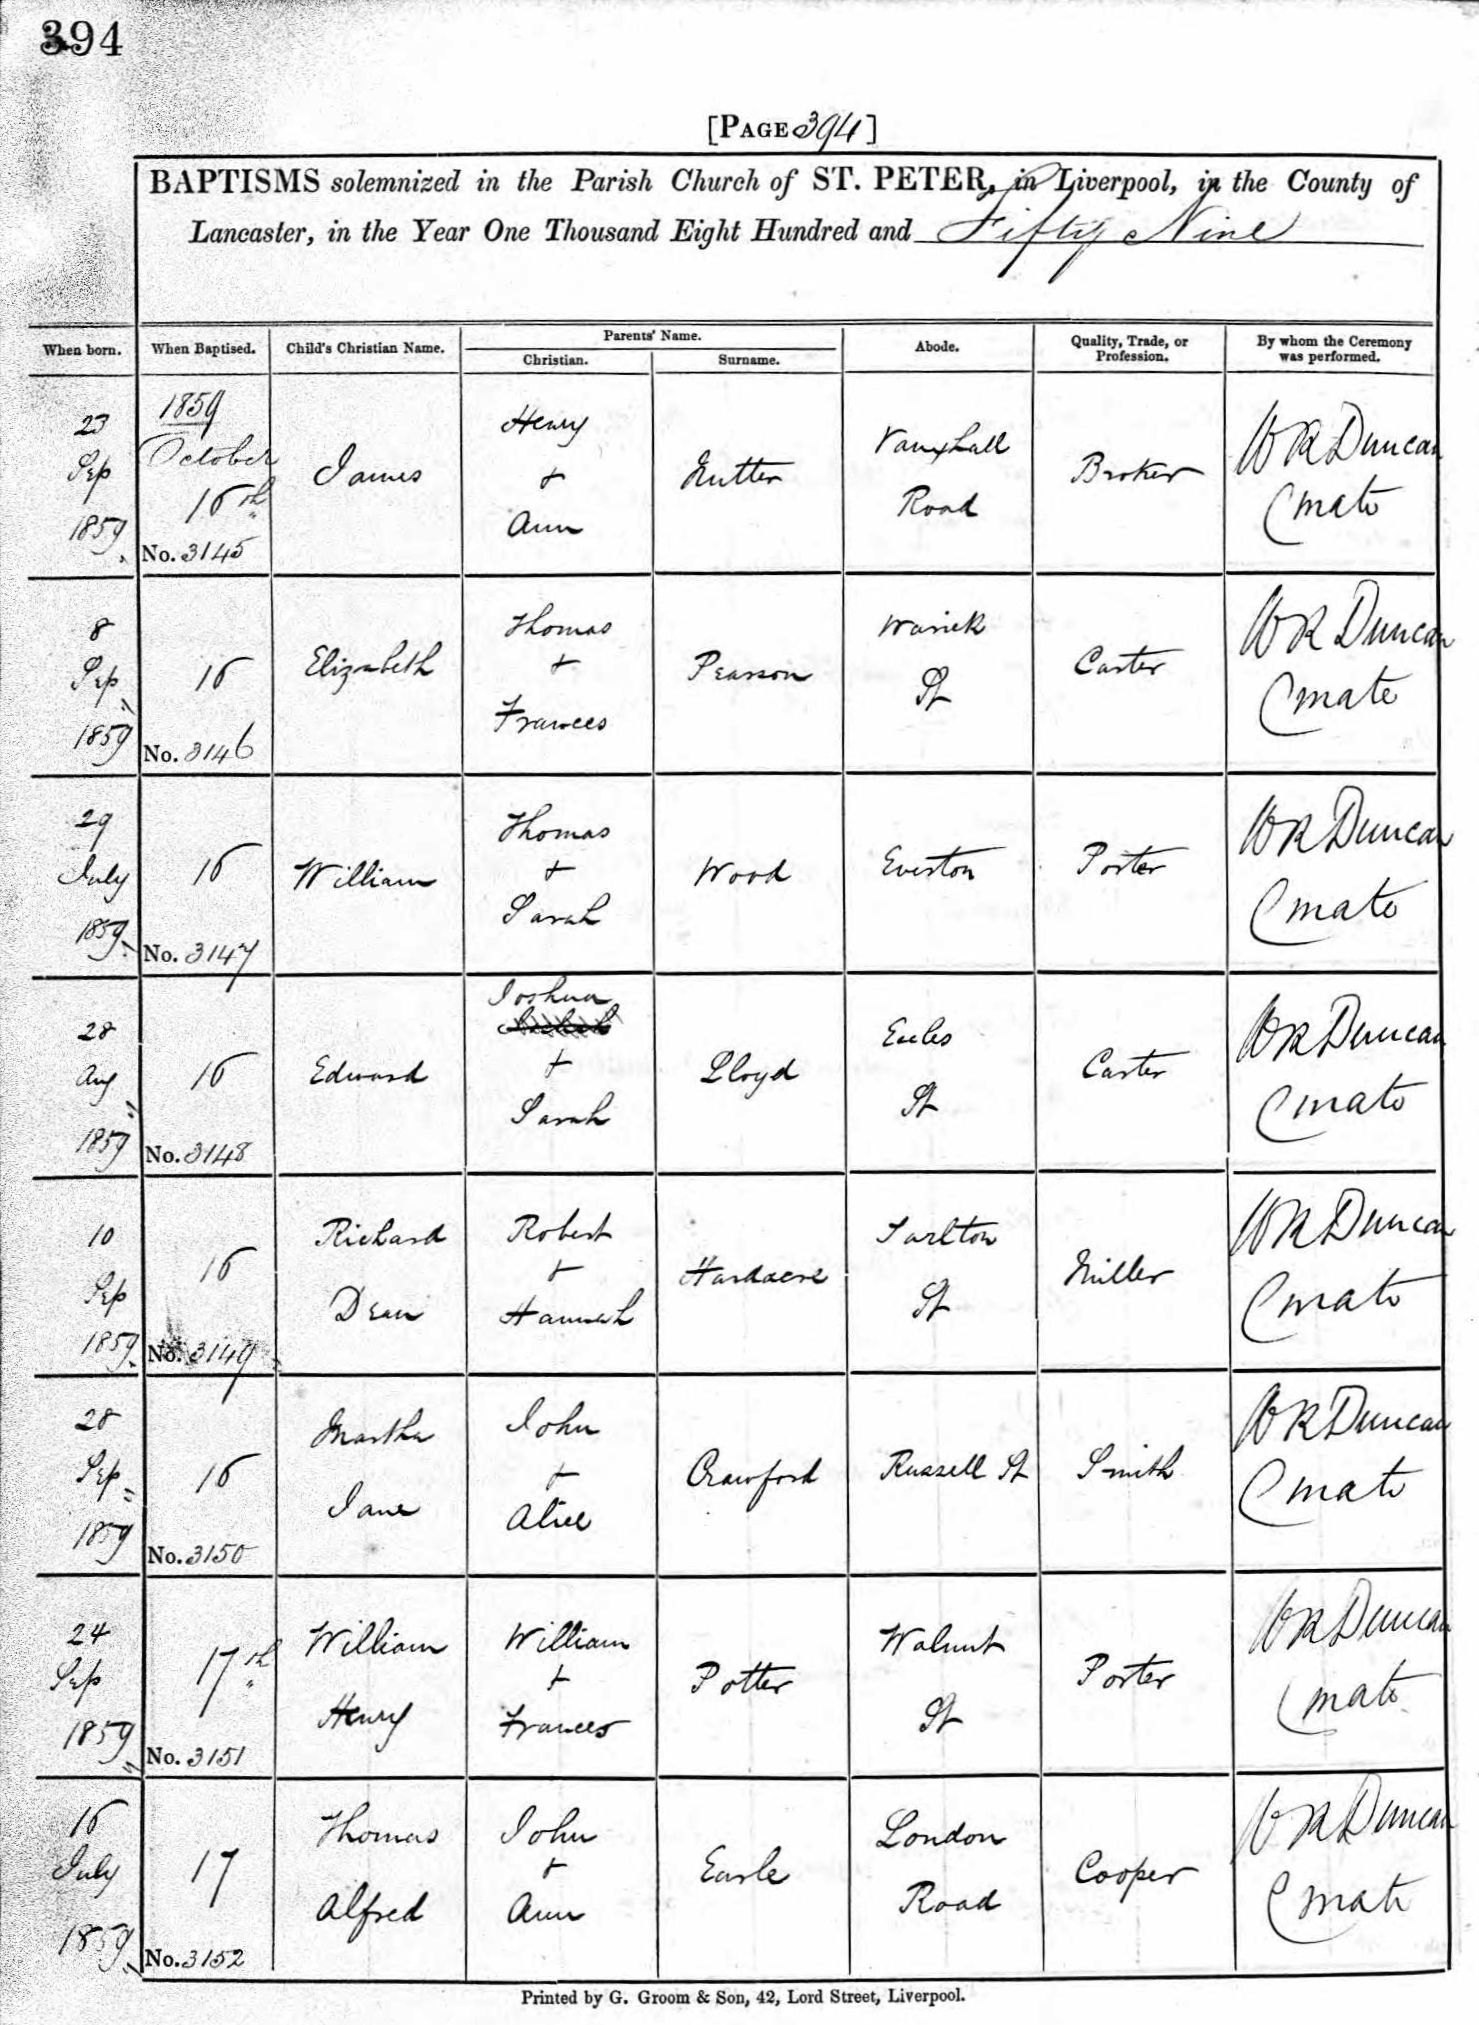 394
[PAGE 394]
BAPTISMS solemnized in the Parish Church of ST. PETER, in Liverpool, in the County of
Lancaster, in the Year One Thousand Eight Hundred and Fifty Nine
When born.
When Baptised.
Child's Christian Name.
Parents' Name.
Christian.
Surname.
Abode.
Quality, Trade, or
Profession.
By whom the Ceremony
was performed.
23
Sep
1859
1859
October
16th
No. 3145
James
Henry
+
Ann
Nutter
Vauxhall
Road
Broker
W R Duncan
Curate
8
Sep
1859
16
No. 3146
Elizabeth
Thomas
+
Frances
Pearson
Warick
St
Carter
W R Duncan
Curate
29
July
1859
16
No. 3147
William
Thomas
+
Sarah
Wood
Everton
Porter
W R Duncan
Curate
28
Aug
1859
16
No. 3148
Edward
Joshua
+
Sarah
Lloyd
Eccles
St
Carter
W R Duncan
Curate
10
Sep
1859
16
No. 3149
Richard
Dean
Robert
+
Hannah
Hardacre
Tarlton
St
Miller
W R Duncan
Curate
28
Sep
1859
16
No. 3150
Martha
Jane
John
+
Alice
Crawford
Russell St
Smith
W R Duncan
Curate
24
Sep
1859
17th
No. 3151
William
Henry
William
+
Frances
Potter
Walnut
St
Porter
W R Duncan
Curate
16
July
1859
17
No. 3152
Thomas
Alfred
John
+
Ann
Earle
London
Road
Cooper
W R Duncan
Curate
Printed by G. Groom & Son, 42, Lord Street, Liverpool.